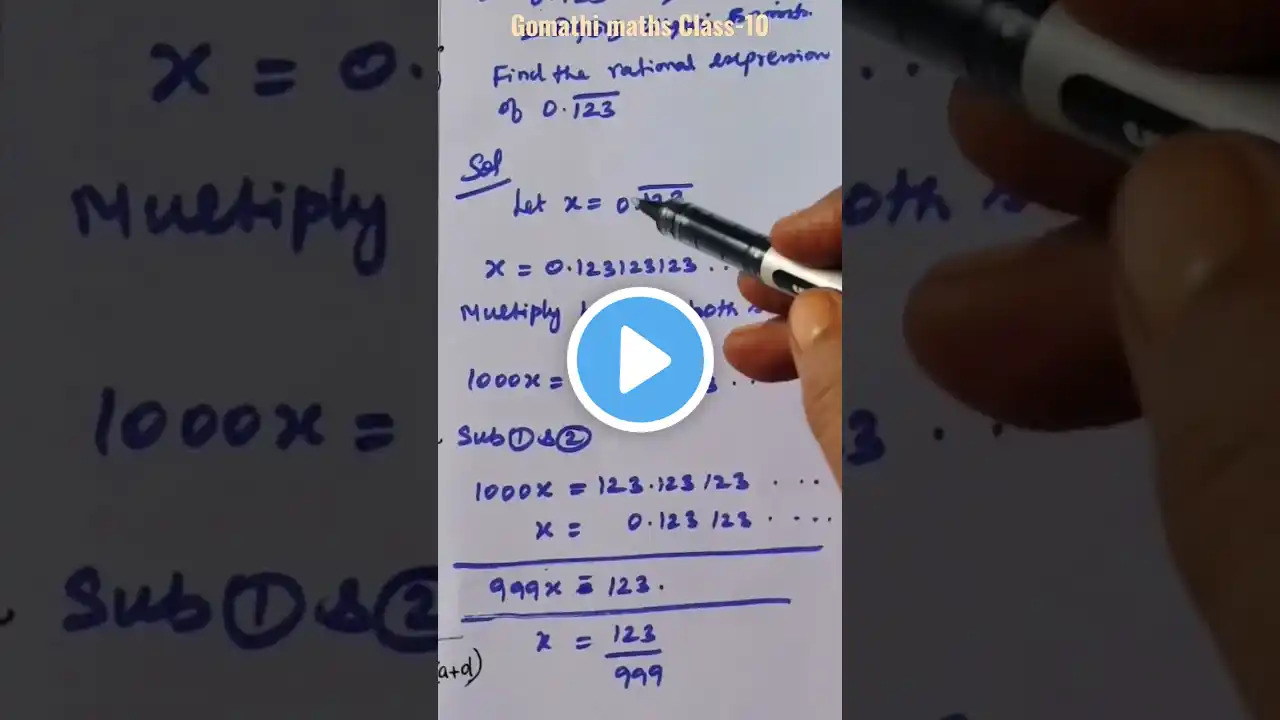 Gomathi maths Class-10
Find the rational expression
of 0.1̅2̅3̅
Sol
Let x = 0.
x = 0.123123123 . .
Multiply both
1000x = 3 . .
Sub ① & ②
1000x = 123.123 123 . . .
x = 0.123 123 . . . .
999x = 123.
x = 123
999
(a+d)
x = 0.
Multiply
1000x =
Sub ① & ②
both
3 . .